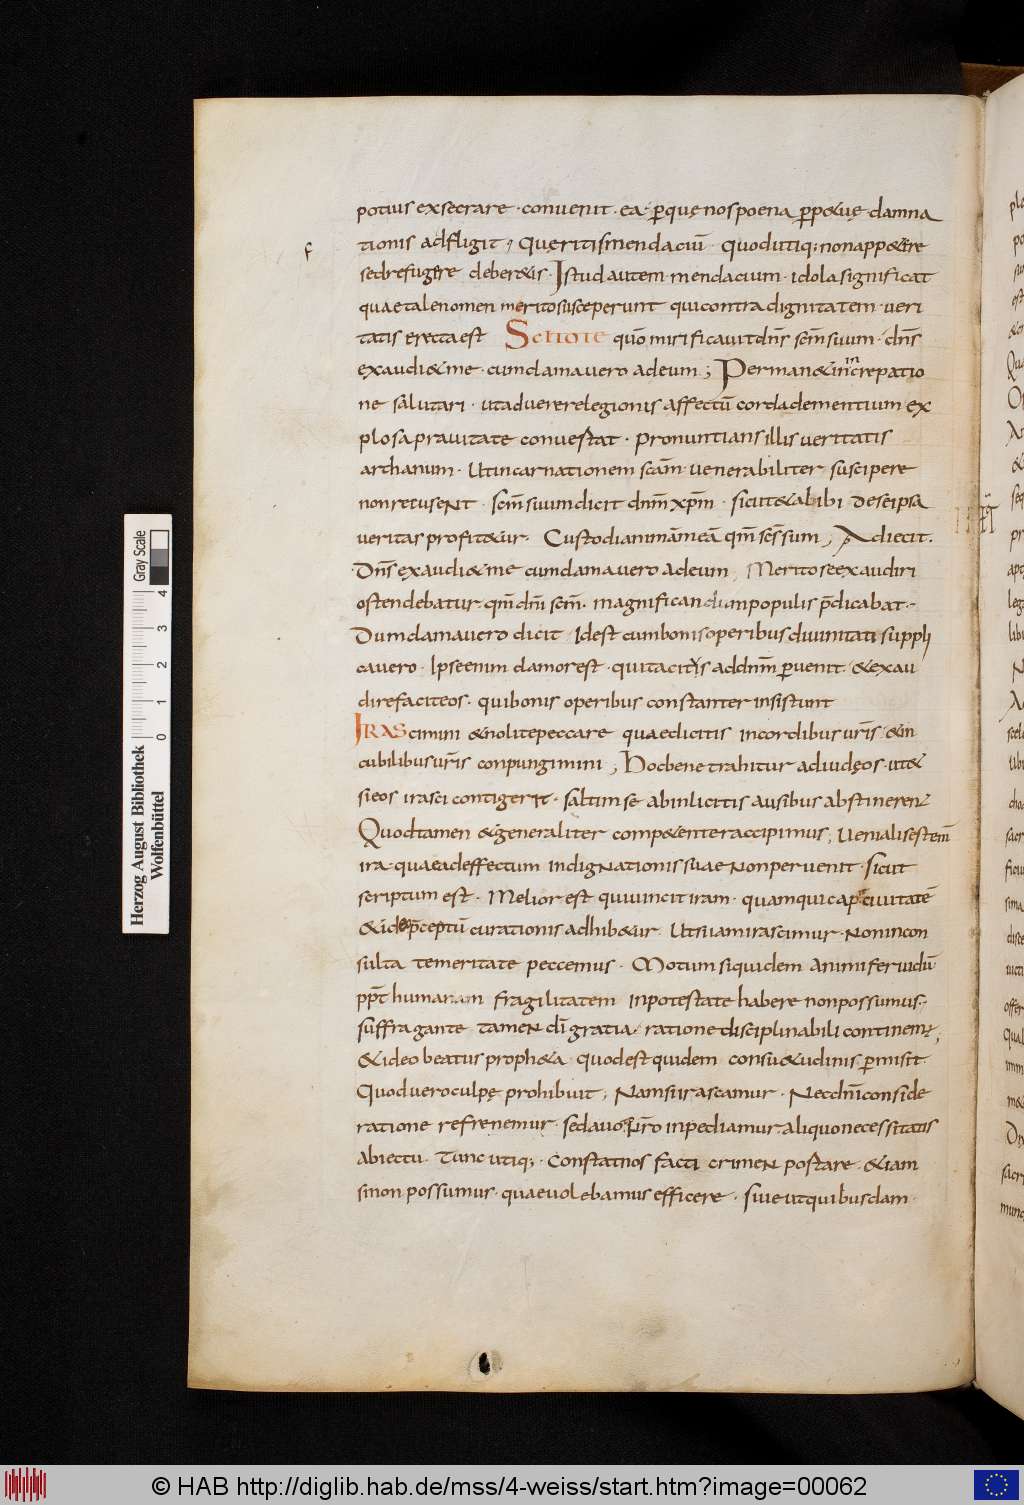 potius exsecrare · convenit · ea · p̱quę nos poena p̱p&uę damna
tionis adfligit, Quęritis mendaciū · quod utiq; non app&ere
sed refugere deber&is · Istud autem mendacium · idola significat
quae tale nomen merito susceperunt qui contra dignitatem veri
tatis erecta est Scitote quō mirificavit dn̄s sc̄m suum · dn̄s
exaudi& me · cum clamavero ad eum ; Perman& in increpatio
ne salutari · ut ad vere relegionis affectū corda clementium ex
plosa pravitate convestat · pronuntians illis veritatis
archanum · Ut incarnationem sc̄am venerabiliter suscipere
non recusent · sc̄m suum dicit dn̄m xp̄m · sicut & alibi de se ipsa
veritas profit&ur · Custodi animā meā qm̄ sc̄s sum, Adiecit ·
Dn̄s exaudi& me cum clamavero ad eum, Merito se exaudiri
ostendebatur qm̄ dn̄i sc̄m · magnificandum populis p̄dicabat ·
Dum clamavero dicit · Id est cum bonis operibus divinitati suppli
cavero · Ipse enim clamor est · qui tacitis ad dn̄m p̱venit · & exau
diri facit eos · qui bonis operibus constanter insistunt
Irascimini & nolite peccare quae dicitis in cordibus vr̄is & in
cubilibus vr̄is conpungimini, Hoc bene trahitur ad iudęos · ut &
si eos irasci contigerit · saltim se ab inlicitis ausibus abstinerent
Quod tamen & generaliter comp&enter accipimus ; Venialis est em̄
ira · quae ad effectum indignationis suae non pervenit · sicut
scriptum est · Melior est qui vincit iram · quam qui capit civitatē
& ideo p̄ceptū curationis adhib&ur · Ut si iam irascimur · Non incon
sulta temeritate peccemus · Motum siquidem animi fervidū
pp̄t humanam fragilitatem in potestate habere non possumus ·
suffragante tamen dī gratia · ratione disciplinabili continemꝰ ;
& ideo beatus proph&a quod est quidem consu&udinis p̱misit
Quod vero culpę prohibuit, Nam si irascamur · Nec dn̄i conside
ratione refrenemur · sed a voto nr̄o inpediamur aliquo necessitatis
abiectu · Tunc utiq; · constat nos facti crimen postare · & iam
si non possumus · quae volebamus efficere · sive ut quibusdam ·
Gray Scale
0 1 2 3 4
Herzog August Bibliothek
Wolfenbüttel
© HAB http://diglib.hab.de/mss/4-weiss/start.htm?image=00062